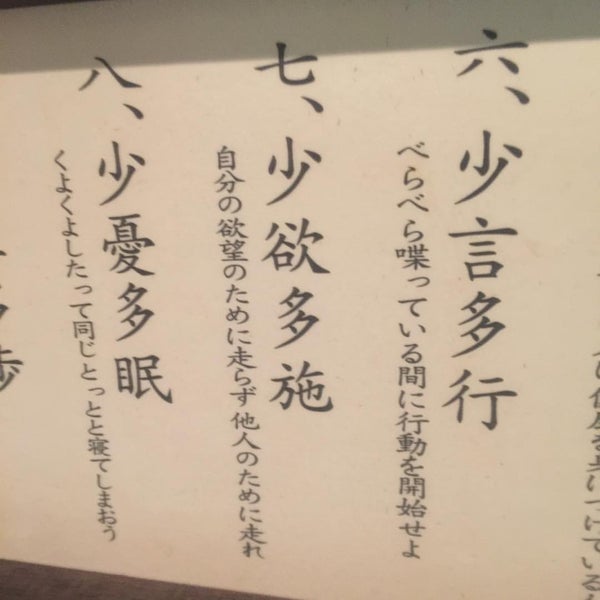 六、少言多行
べらべら喋っている間に行動を開始せよ
七、少欲多施
自分の欲望のために走らず他人のために走れ
八、少憂多眠
くよくよしたって同じとっとと寝てしまおう